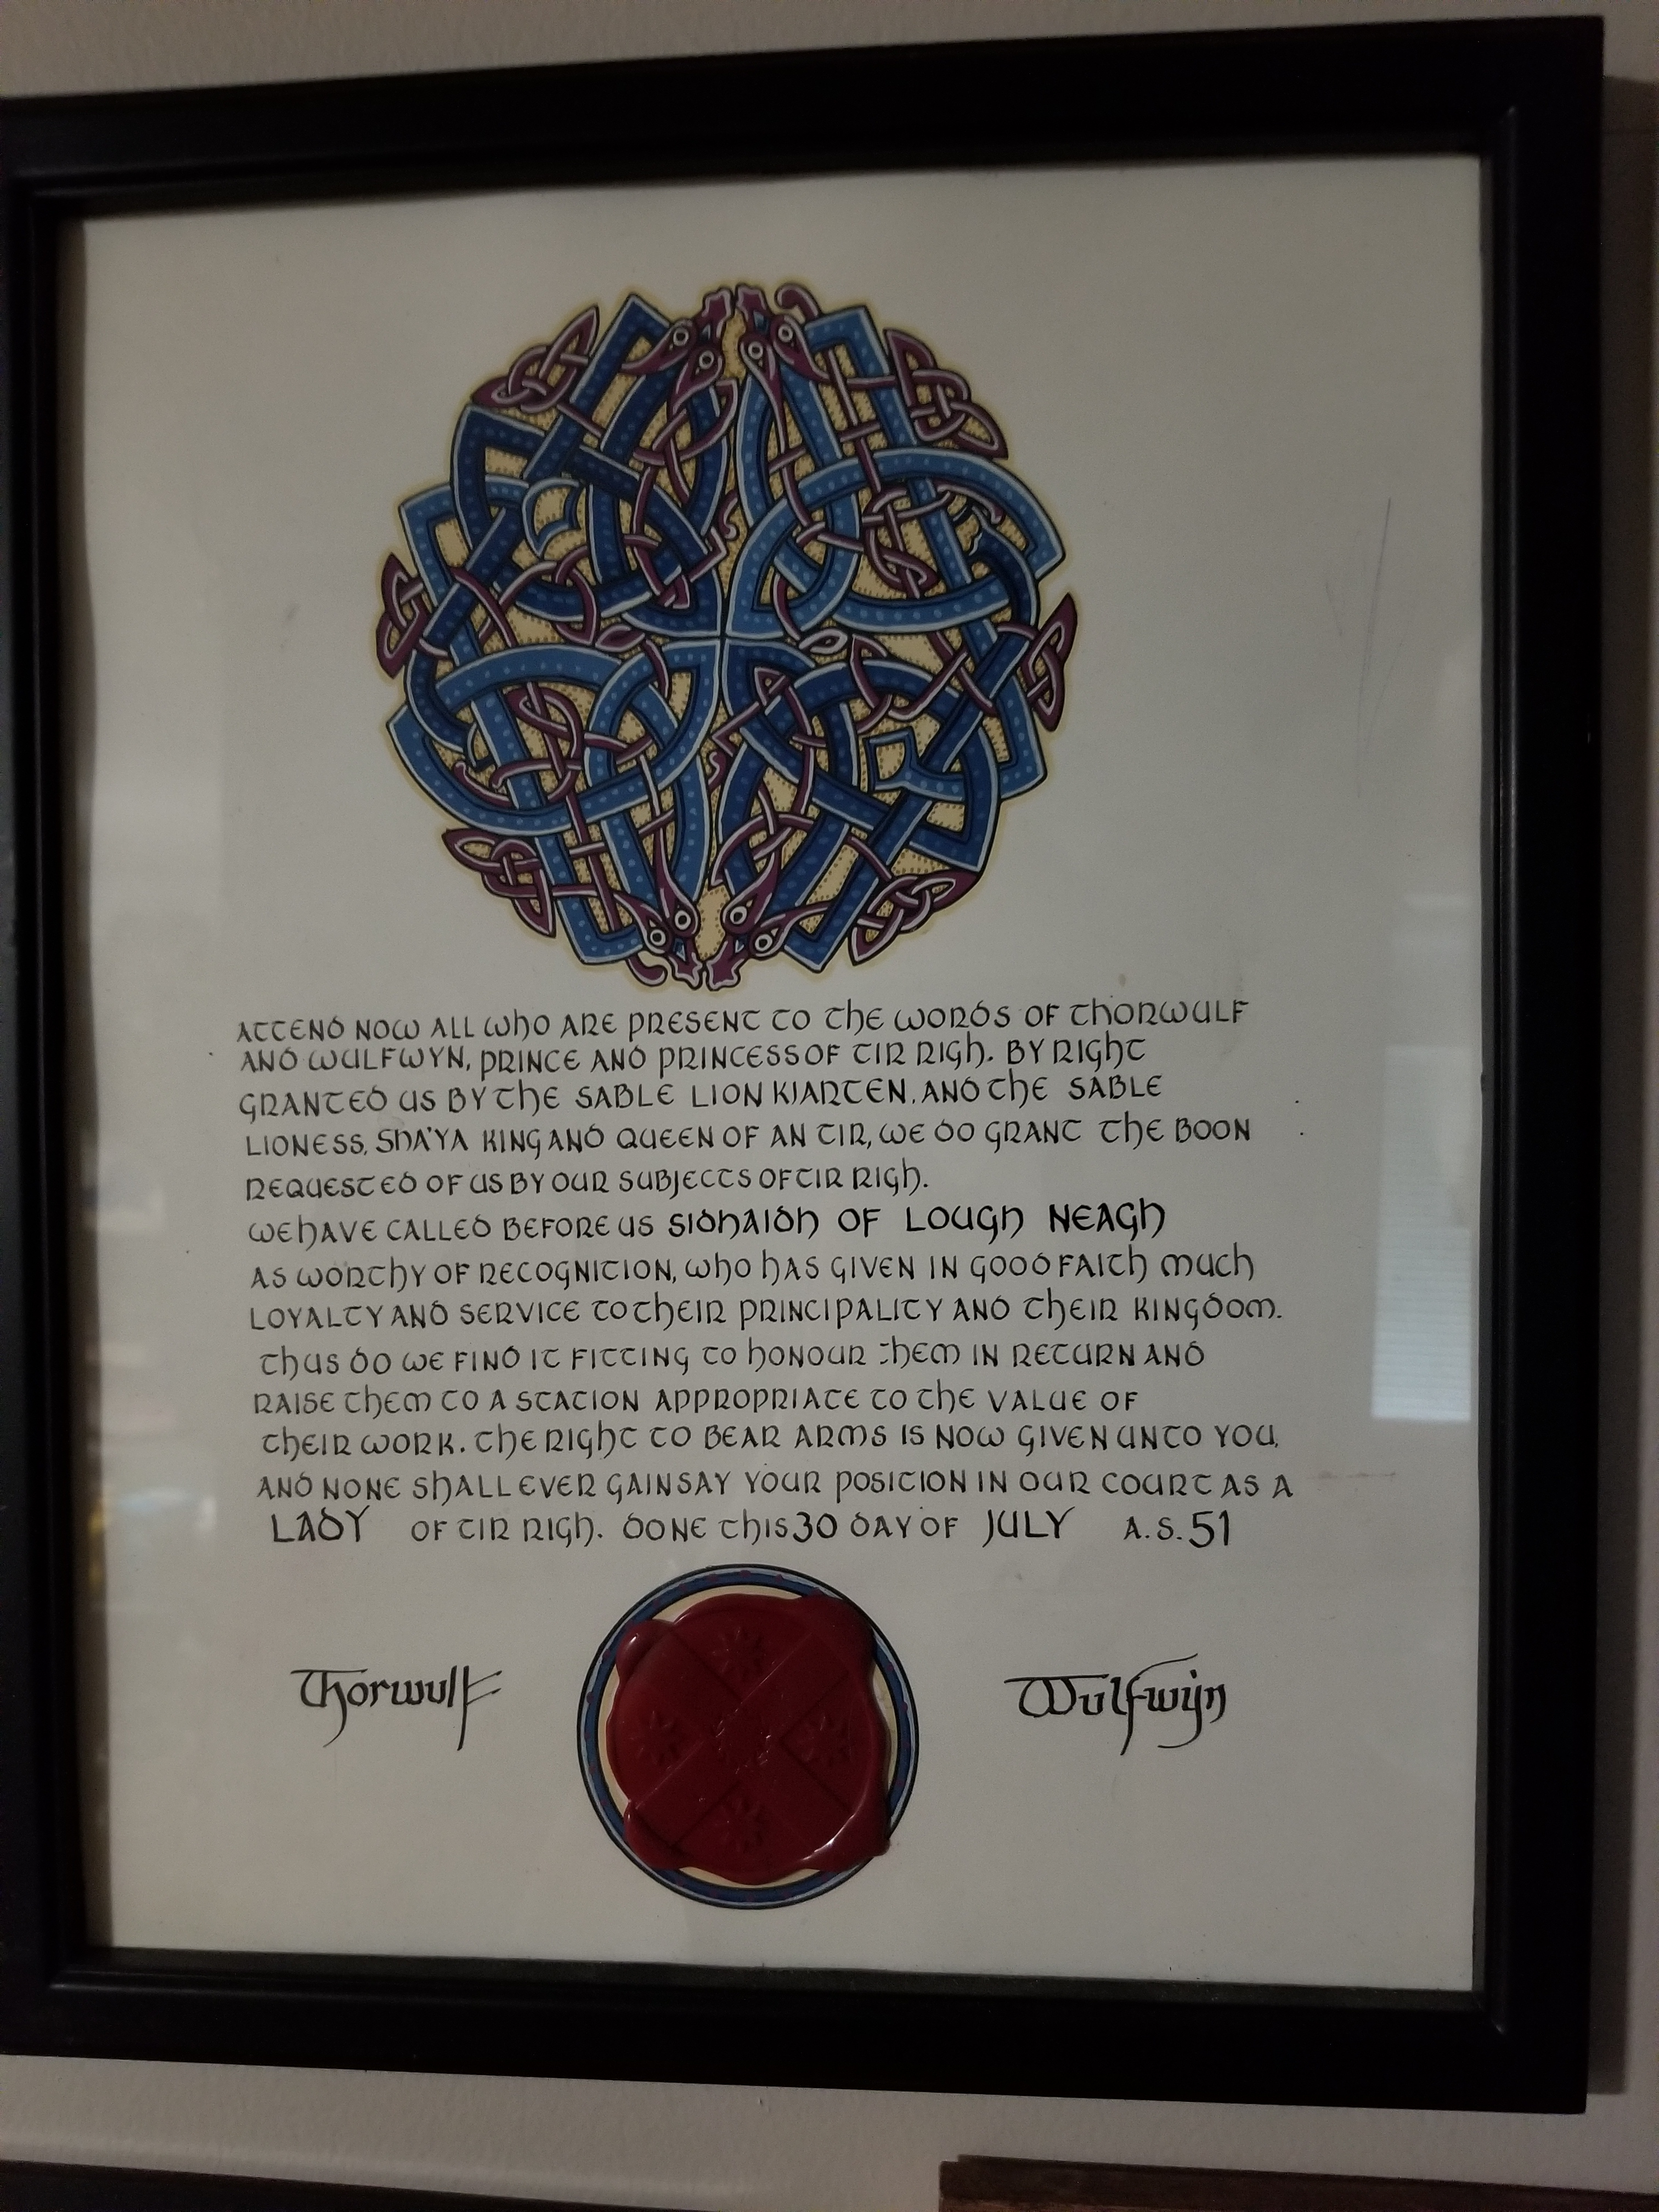 ATTEND NOW ALL WHO ARE PRESENT TO THE WORDS OF THORWULF
AND WULFWYN, PRINCE AND PRINCESS OF TIR RIGH. BY RIGHT
GRANTED US BY THE SABLE LION KJARTEN, AND THE SABLE
LIONESS, SHA'YA KING AND QUEEN OF AN TIR, WE DO GRANT THE BOON
REQUESTED OF US BY OUR SUBJECTS OF TIR RIGH.
WE HAVE CALLED BEFORE US SIDHAIDH OF LOUGH NEAGH
AS WORTHY OF RECOGNITION, WHO HAS GIVEN IN GOOD FAITH MUCH
LOYALTY AND SERVICE TO THEIR PRINCIPALITY AND THEIR KINGDOM.
THUS DO WE FIND IT FITTING TO HONOUR THEM IN RETURN AND
RAISE THEM TO A STATION APPROPRIATE TO THE VALUE OF
THEIR WORK. THE RIGHT TO BEAR ARMS IS NOW GIVEN UNTO YOU,
AND NONE SHALL EVER GAINSAY YOUR POSITION IN OUR COURT AS A
LADY OF TIR RIGH. DONE THIS 30 DAY OF JULY A.S. 51
Thorwulf
Wulfwyn